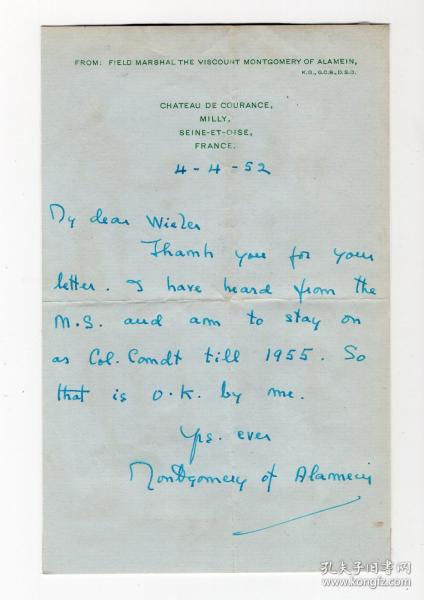 FROM: FIELD MARSHAL THE VISCOUNT MONTGOMERY OF ALAMEIN,
K.G., G.C.B., D.S.O.
CHATEAU DE COURANCE,
MILLY,
SEINE-ET-OISE,
FRANCE.
4-4-52
My dear
Thank you for your
letter. I have heard from the
M.S. and am to stay on
as Col. Comdt till 1955. So
that is O.K. by me.
Yrs. ever
Montgomery of Alamein
孔夫子旧书网
www.kongfz.com